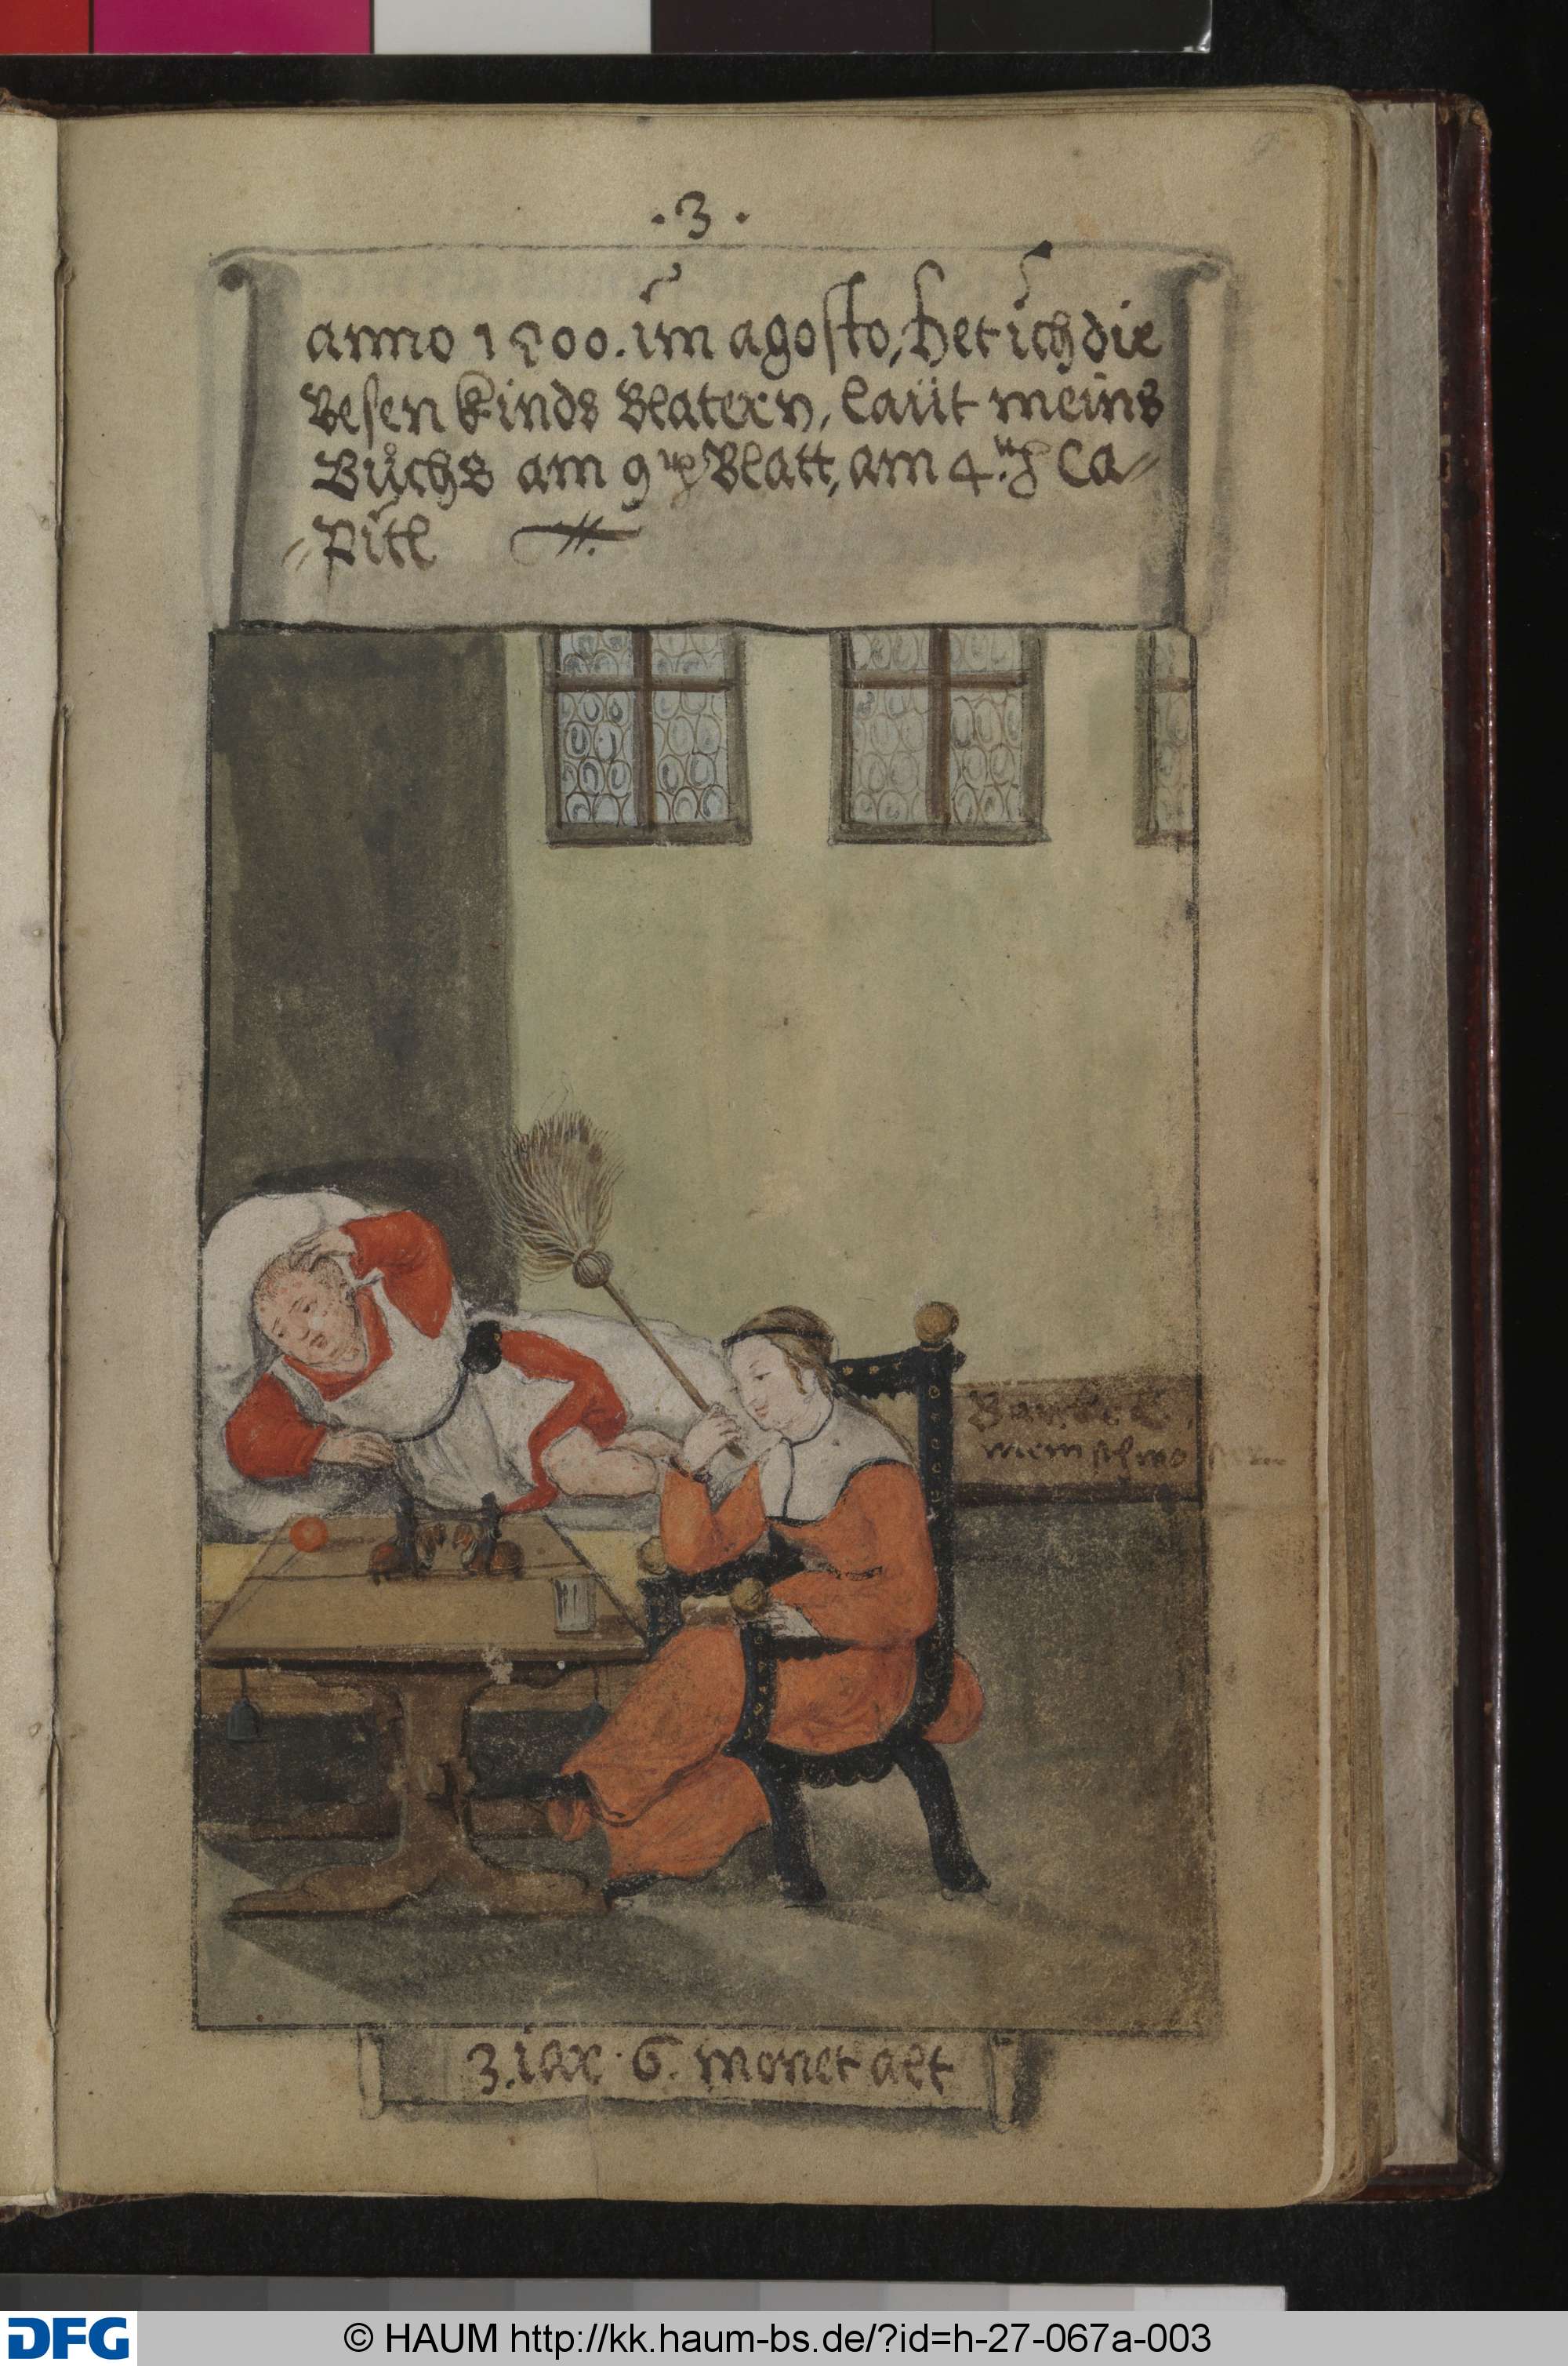 .3.
anno 1500. im agosto, het ich die
Besen kinds Blatern, laüt meins
Bůchs am 9 Blatt, am 4. Ca=
=pitl
Barbel
mein schwoster
3. iar. 6. monet alt
DFG
© HAUM http://kk.haum-bs.de/?id=h-27-067a-003